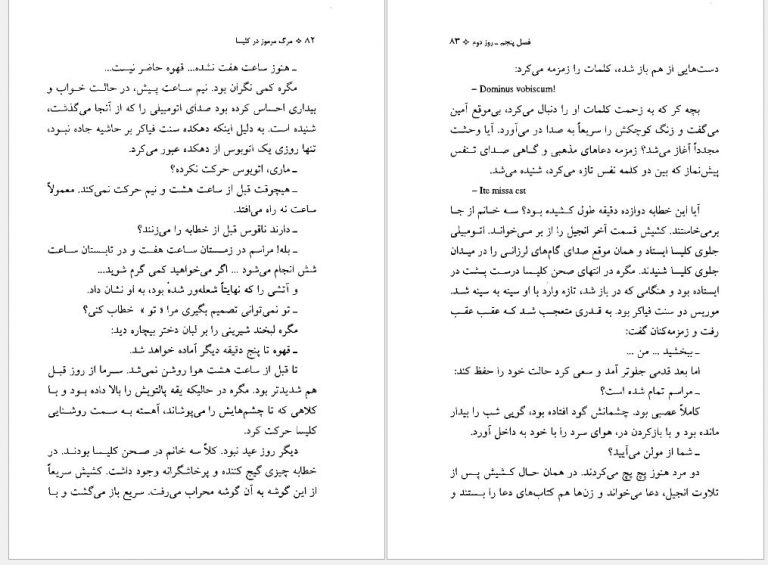 ۸۲ ❖ مرگ مرموز در کلیسا
ـ هنوز ساعت هفت نشده... قهوه حاضر نیست...
مگره کمی نگران بود. نیم ساعت پیش، در حالت خواب و
بیداری احساس کرده بود صدای اتومبیلی را که از آنجا می‌گذشت،
شنیده است. به دلیل اینکه دهکده سنت فیاکر بر حاشیه جاده نبود،
تنها روزی یک اتوبوس از دهکده عبور می‌کرد.
ـ ماری، اتوبوس حرکت نکرده؟
ـ هیچوقت قبل از ساعت هشت و نیم حرکت نمی‌کند. معمولاً
ساعت نه راه می‌افتد.
ـ دارند ناقوس قبل از خطابه را می‌زنند؟
ـ بله! مراسم در زمستان ساعت هفت و در تابستان ساعت
شش انجام می‌شود ... اگر می‌خواهید کمی گرم شوید...
و آتشی را که نهایتاً شعله‌ور شده بود، به او نشان داد.
ـ تو نمی‌توانی تصمیم بگیری مرا « تو » خطاب کنی؟
مگره لبخند شیرینی را بر لبان دختر بیچاره دید:
ـ قهوه تا پنج دقیقه دیگر آماده خواهد شد.
تا قبل از ساعت هشت هوا روشن نمی‌شد. سرما از روز قبل
هم شدیدتر بود. مگره در حالیکه یقه پالتویش را بالا داده بود و با
کلاهی که تا چشم‌هایش را می‌پوشاند، آهسته به سمت روشنایی
کلیسا حرکت کرد.
دیگر روز عید نبود. کلاً سه خانم در صحن کلیسا بودند. در
خطابه چیزی گیج کننده و پرخاشگرانه وجود داشت. کشیش سریعاً
از این گوشه به آن گوشه محراب می‌رفت. سریع باز می‌گشت و با
فصل پنجم ـ روز دوم ❖ ۸۳
دست‌هایی از هم باز شده، کلمات را زمزمه می‌کرد:
– Dominus vobiscum!
بچه کر که به زحمت کلمات او را دنبال می‌کرد، بی‌موقع آمین
می‌گفت و زنگ کوچکش را سریعاً به صدا در می‌آورد. آیا وحشت
مجدداً آغاز می‌شد؟ زمزمه دعاهای مذهبی و گاهی صدای تنفس
پیش‌نماز که بین دو کلمه نفس تازه می‌کرد، شنیده می‌شد.
– Ite missa est
آیا این خطابه دوازده دقیقه طول کشیده بود؟ سه خانم از جا
برمی‌خاستند. کشیش قسمت آخر انجیل را از بر می‌خواند. اتومبیلی
جلوی کلیسا ایستاد و همان موقع صدای گام‌های لرزانی را در میدان
جلوی کلیسا شنیدند. مگره در انتهای صحن کلیسا درست پشت در
ایستاده بود و هنگامی که در باز شد، تازه وارد با او سینه به سینه شد.
موریس دو سنت فیاکر بود. به قدری متعجب شد که عقب عقب
رفت و زمزمه‌کنان گفت:
ـ ببخشید ... من ...
اما بعد قدمی جلوتر آمد و سعی کرد حالت خود را حفظ کند:
ـ مراسم تمام شده است؟
کاملاً عصبی بود. چشمانش گود افتاده بود، گویی شب را بیدار
مانده بود و با بازکردن در، هوای سرد را با خود به داخل آورد.
ـ شما از مولن می‌آیید؟
دو مرد هنوز پچ پچ می‌کردند. در همان حال کشیش پس از
تلاوت انجیل، دعا می‌خواند و زن‌ها هم کتاب‌های دعا را بستند و